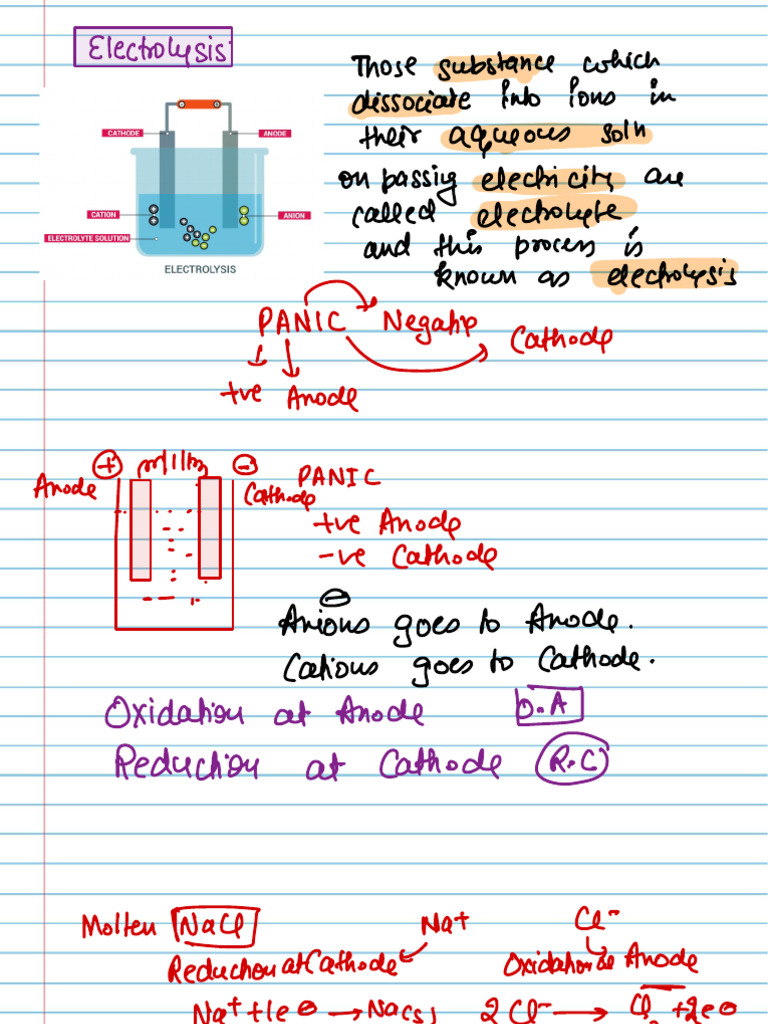 Electrolysis
Those substance which
dissociate into ions in
their aqueous soln
on passing electricity are
called electrolyte
and this process is
known as electrolysis
CATHODE
ANODE
CATION
ANION
ELECTROLYTE SOLUTION
ELECTROLYSIS
PANIC Negative Cathode
+ve Anode
Anode + - Cathode
PANIC
+ve Anode
-ve Cathode
Anions goes to Anode.
Cations goes to Cathode.
Oxidation at Anode O.A
Reduction at Cathode R.C
Molten NaCl Na+ Cl-
Reduction at Cathode Oxidation Anode
Na+ + 1e⊖ → Na(s) 2Cl- → Cl2 + 2e⊖